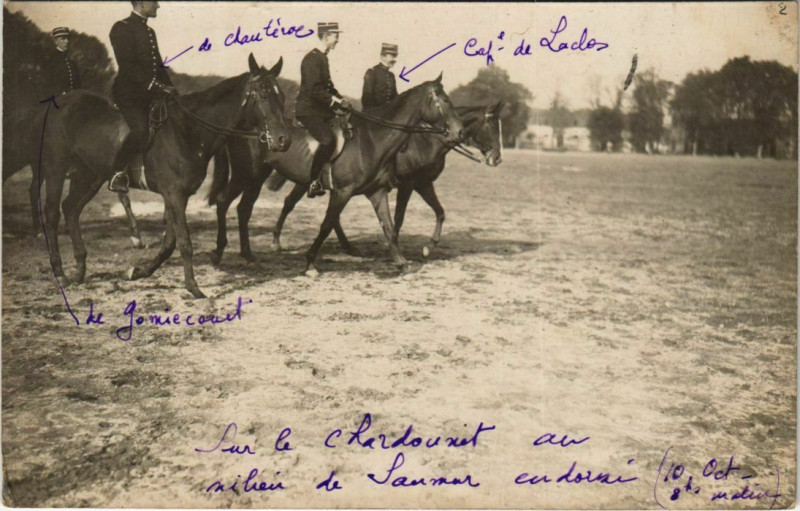 2
de chautéroc
Cap.e de Laclos
de Gomiecourt
Sur le Chardonnet au
milieu de Saumur endormi
(10 Oct -
8hs matin)